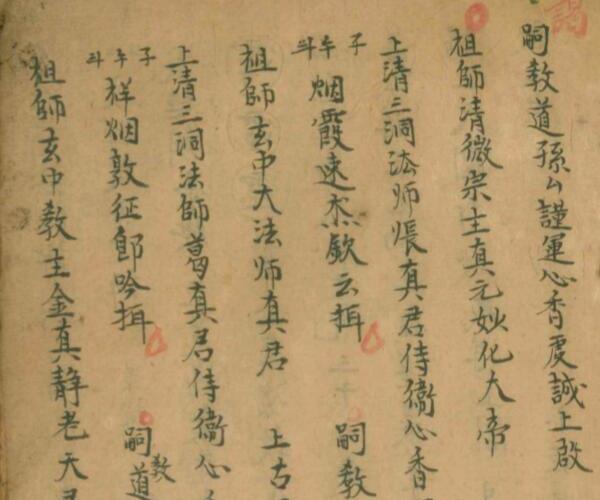 嗣教道孫厶謹運心香虔誠上啟
祖師清微宗主真元妙化大帝
上清三洞法師張真君侍衛心香
烟霞速欽云揖 嗣教
祖師玄中大法師真君 上古
上清三洞法師葛真君侍衛心
祥烟敦征郎吟揖 嗣教道
祖師玄中教主金真靜老天